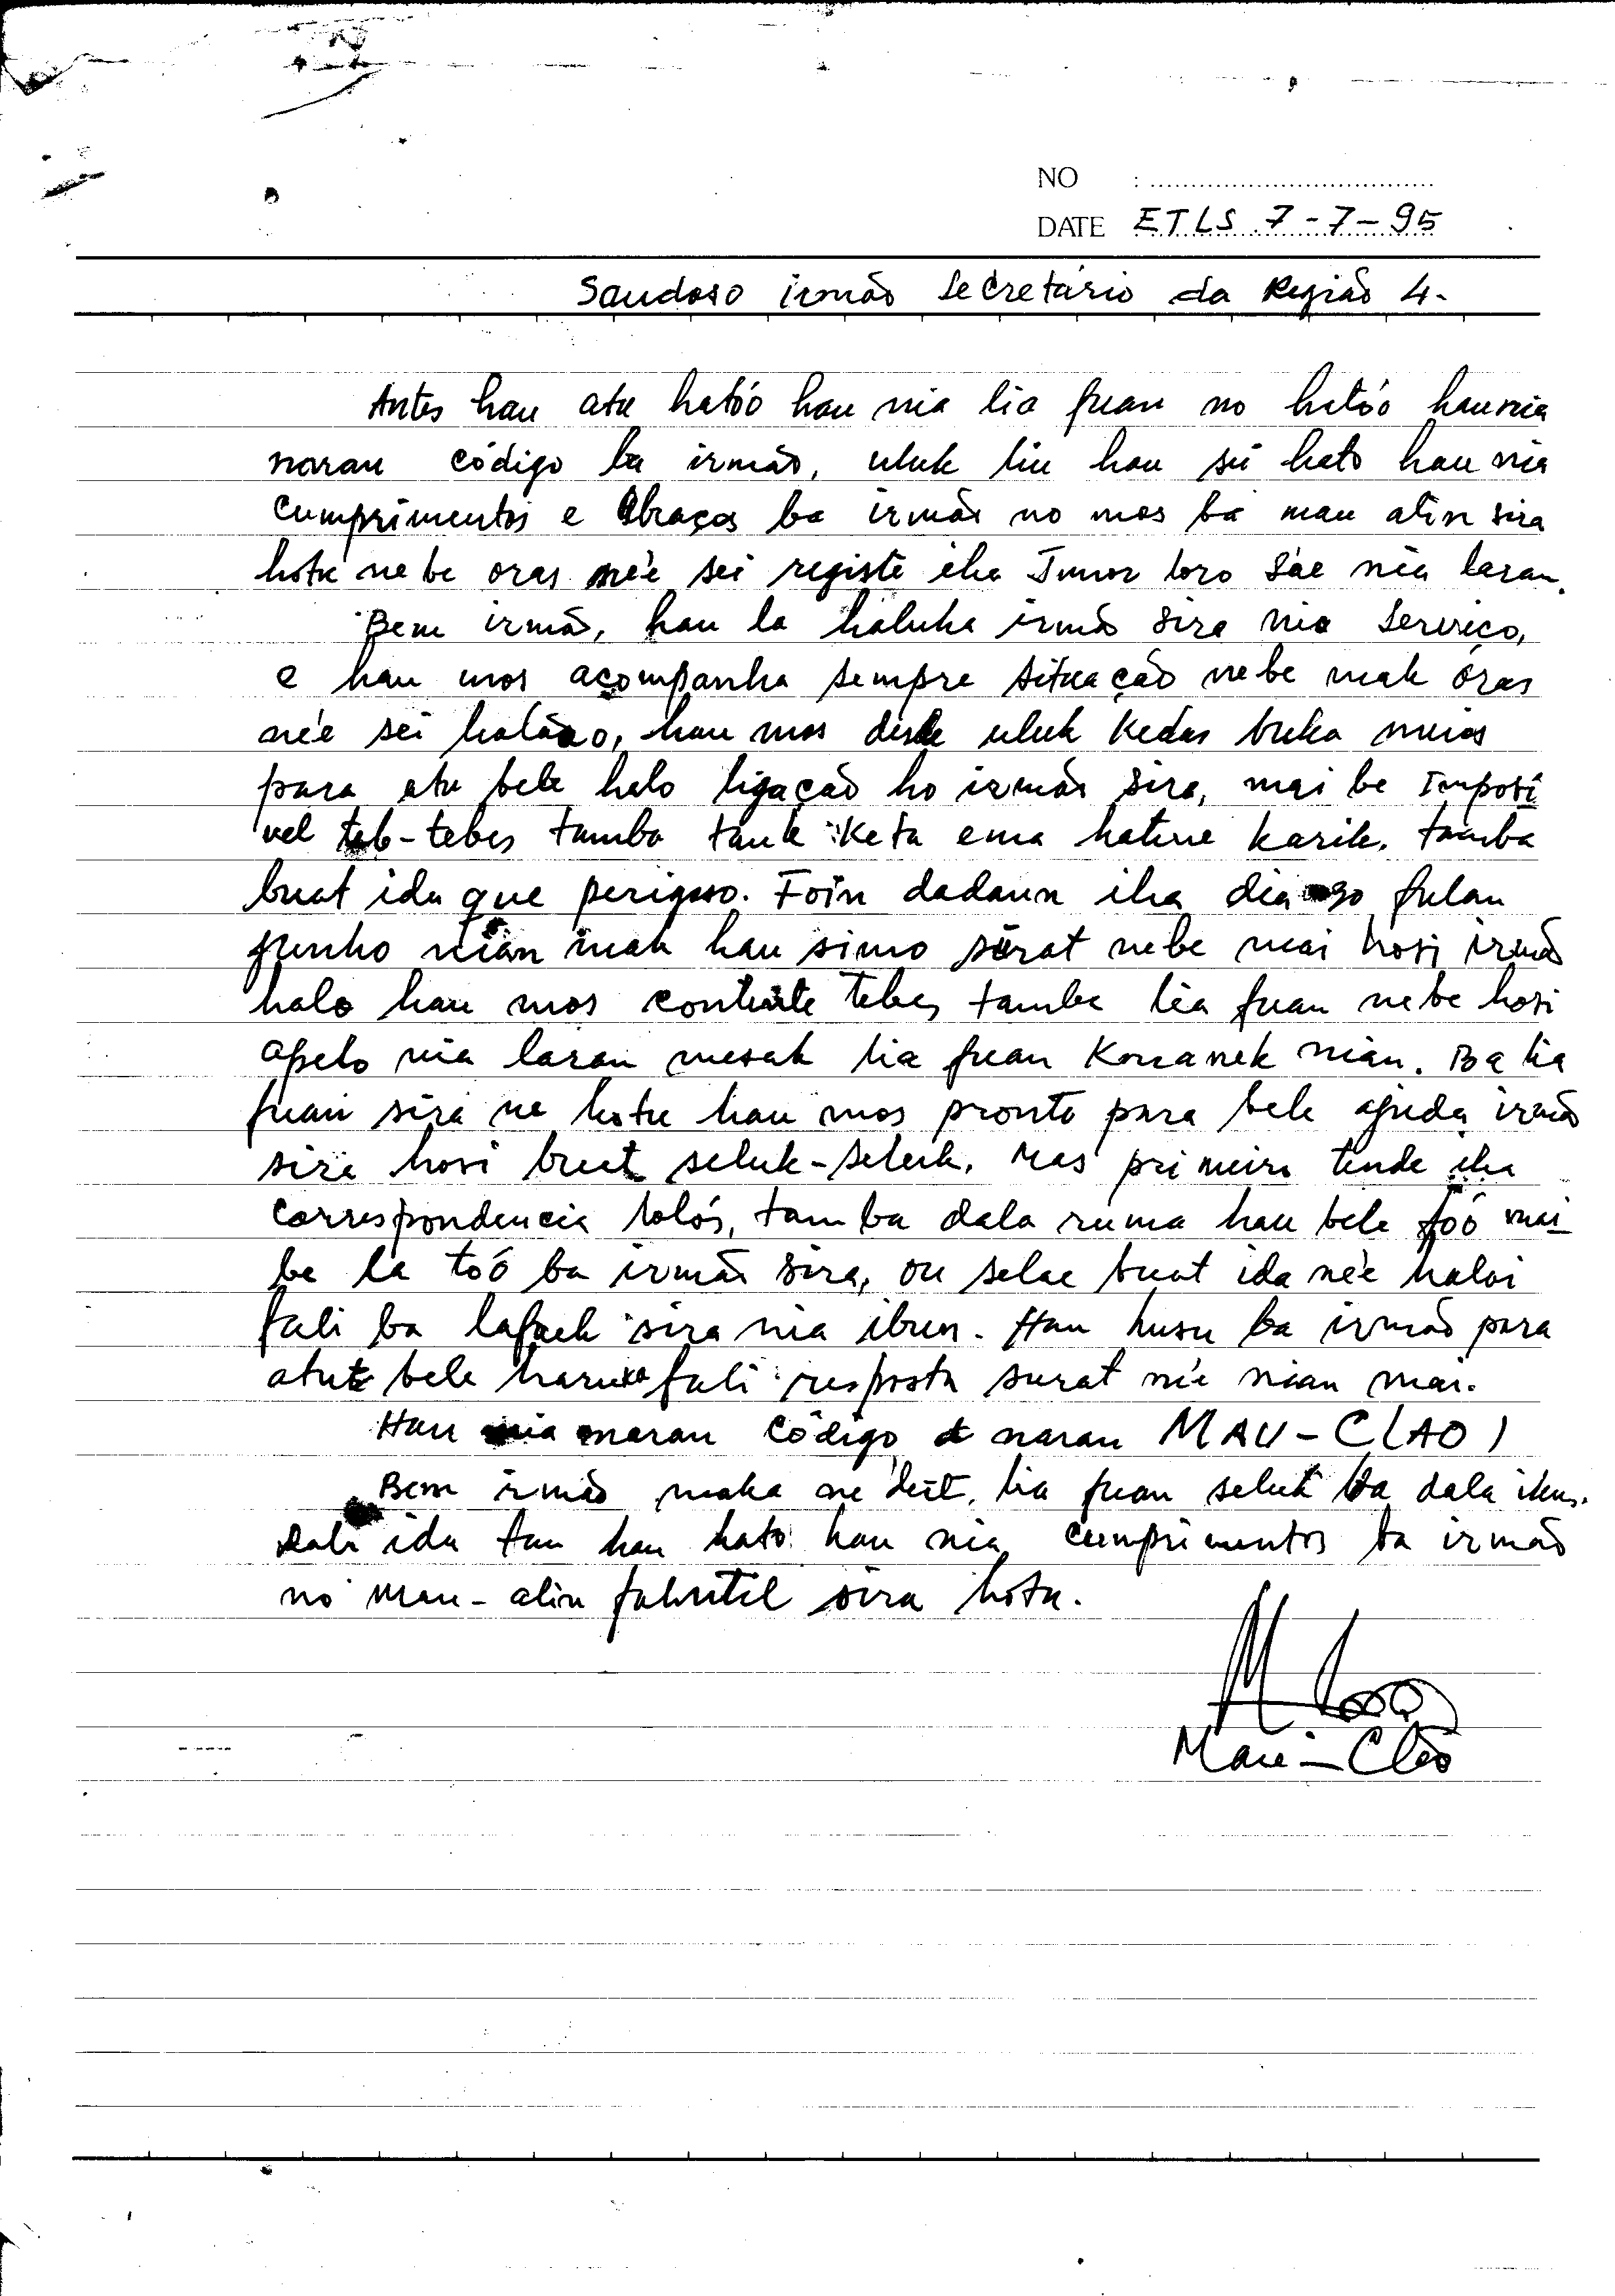 NO :
DATE ETLS 7-7-95
Saudoso irmão Secretário da Região 4.
Antes hau atu hatóo hau nia lia fuan no hatóo hau nia
naran código ba irmão, uluk liu hau sei hato hau nia
cumprimentos e Abraços ba irmão no mos ba mau alin sira
hotu nebe oras né'e sei registe iha Timor loro Sáe nia laran.
Bem irmão, hau la haluha irmão sira nia Serviço,
e hau mos acompanha sempre situação nebe mak oras
né'e sei halão, hau mos desde uluk Kedas buka meios
para atu bele halo ligação ho irmão sira, mai be Imposí
vel teb-tebes tamba tauk Keta ema hatene karik. tamba
buat ida que perigoso. Foin dadaun iha dia 30 fulan
Junho nian mak hau simo surat nebe mai hosi irmão
halo hau mos contente tebes tamba lia fuan nebe hosi
apelo nia laran mesak lia fuan Kmanek nian. Ba lia
fuan sira ne hotu hau mos pronto para bele ajuda irmão
sira hosi buat seluk-seluk. Mas primeiro tende iha
correspondencia lolós, tamba dala ruma hau bele fóó mai
be la tóó ba irmão sira, ou selae buat ida né'e halai
fali ba lafaek sira nia ibun. Hau husu ba irmão para
atu bele haruka fali resposta surat né'e nian mai.
Hau nia naran código naran MAU-CLAO)
Bem irmão maka ne deit, lia fuan seluk ba dala ikus.
Dala ida tan hau hato hau nia cumprimentos ba irmão
no mau-alin falintil sira hotu.
Mau-Cláo